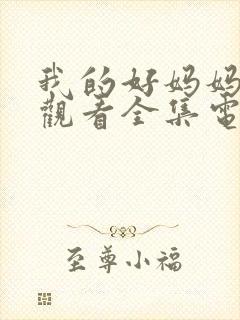 我的好妈妈
觀看全集電
至尊小福